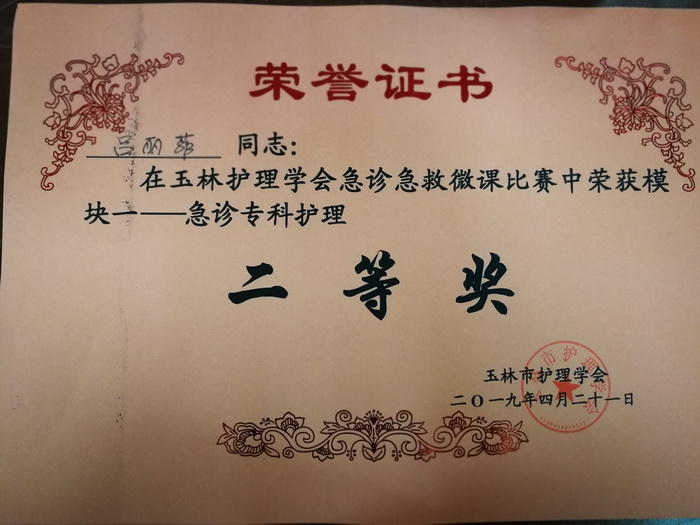 荣誉证书
吕丽菲 同志：
在玉林护理学会急诊急救微课比赛中荣获模
块一——急诊专科护理
二等奖
玉林市护理学会
二〇一九年四月二十一日